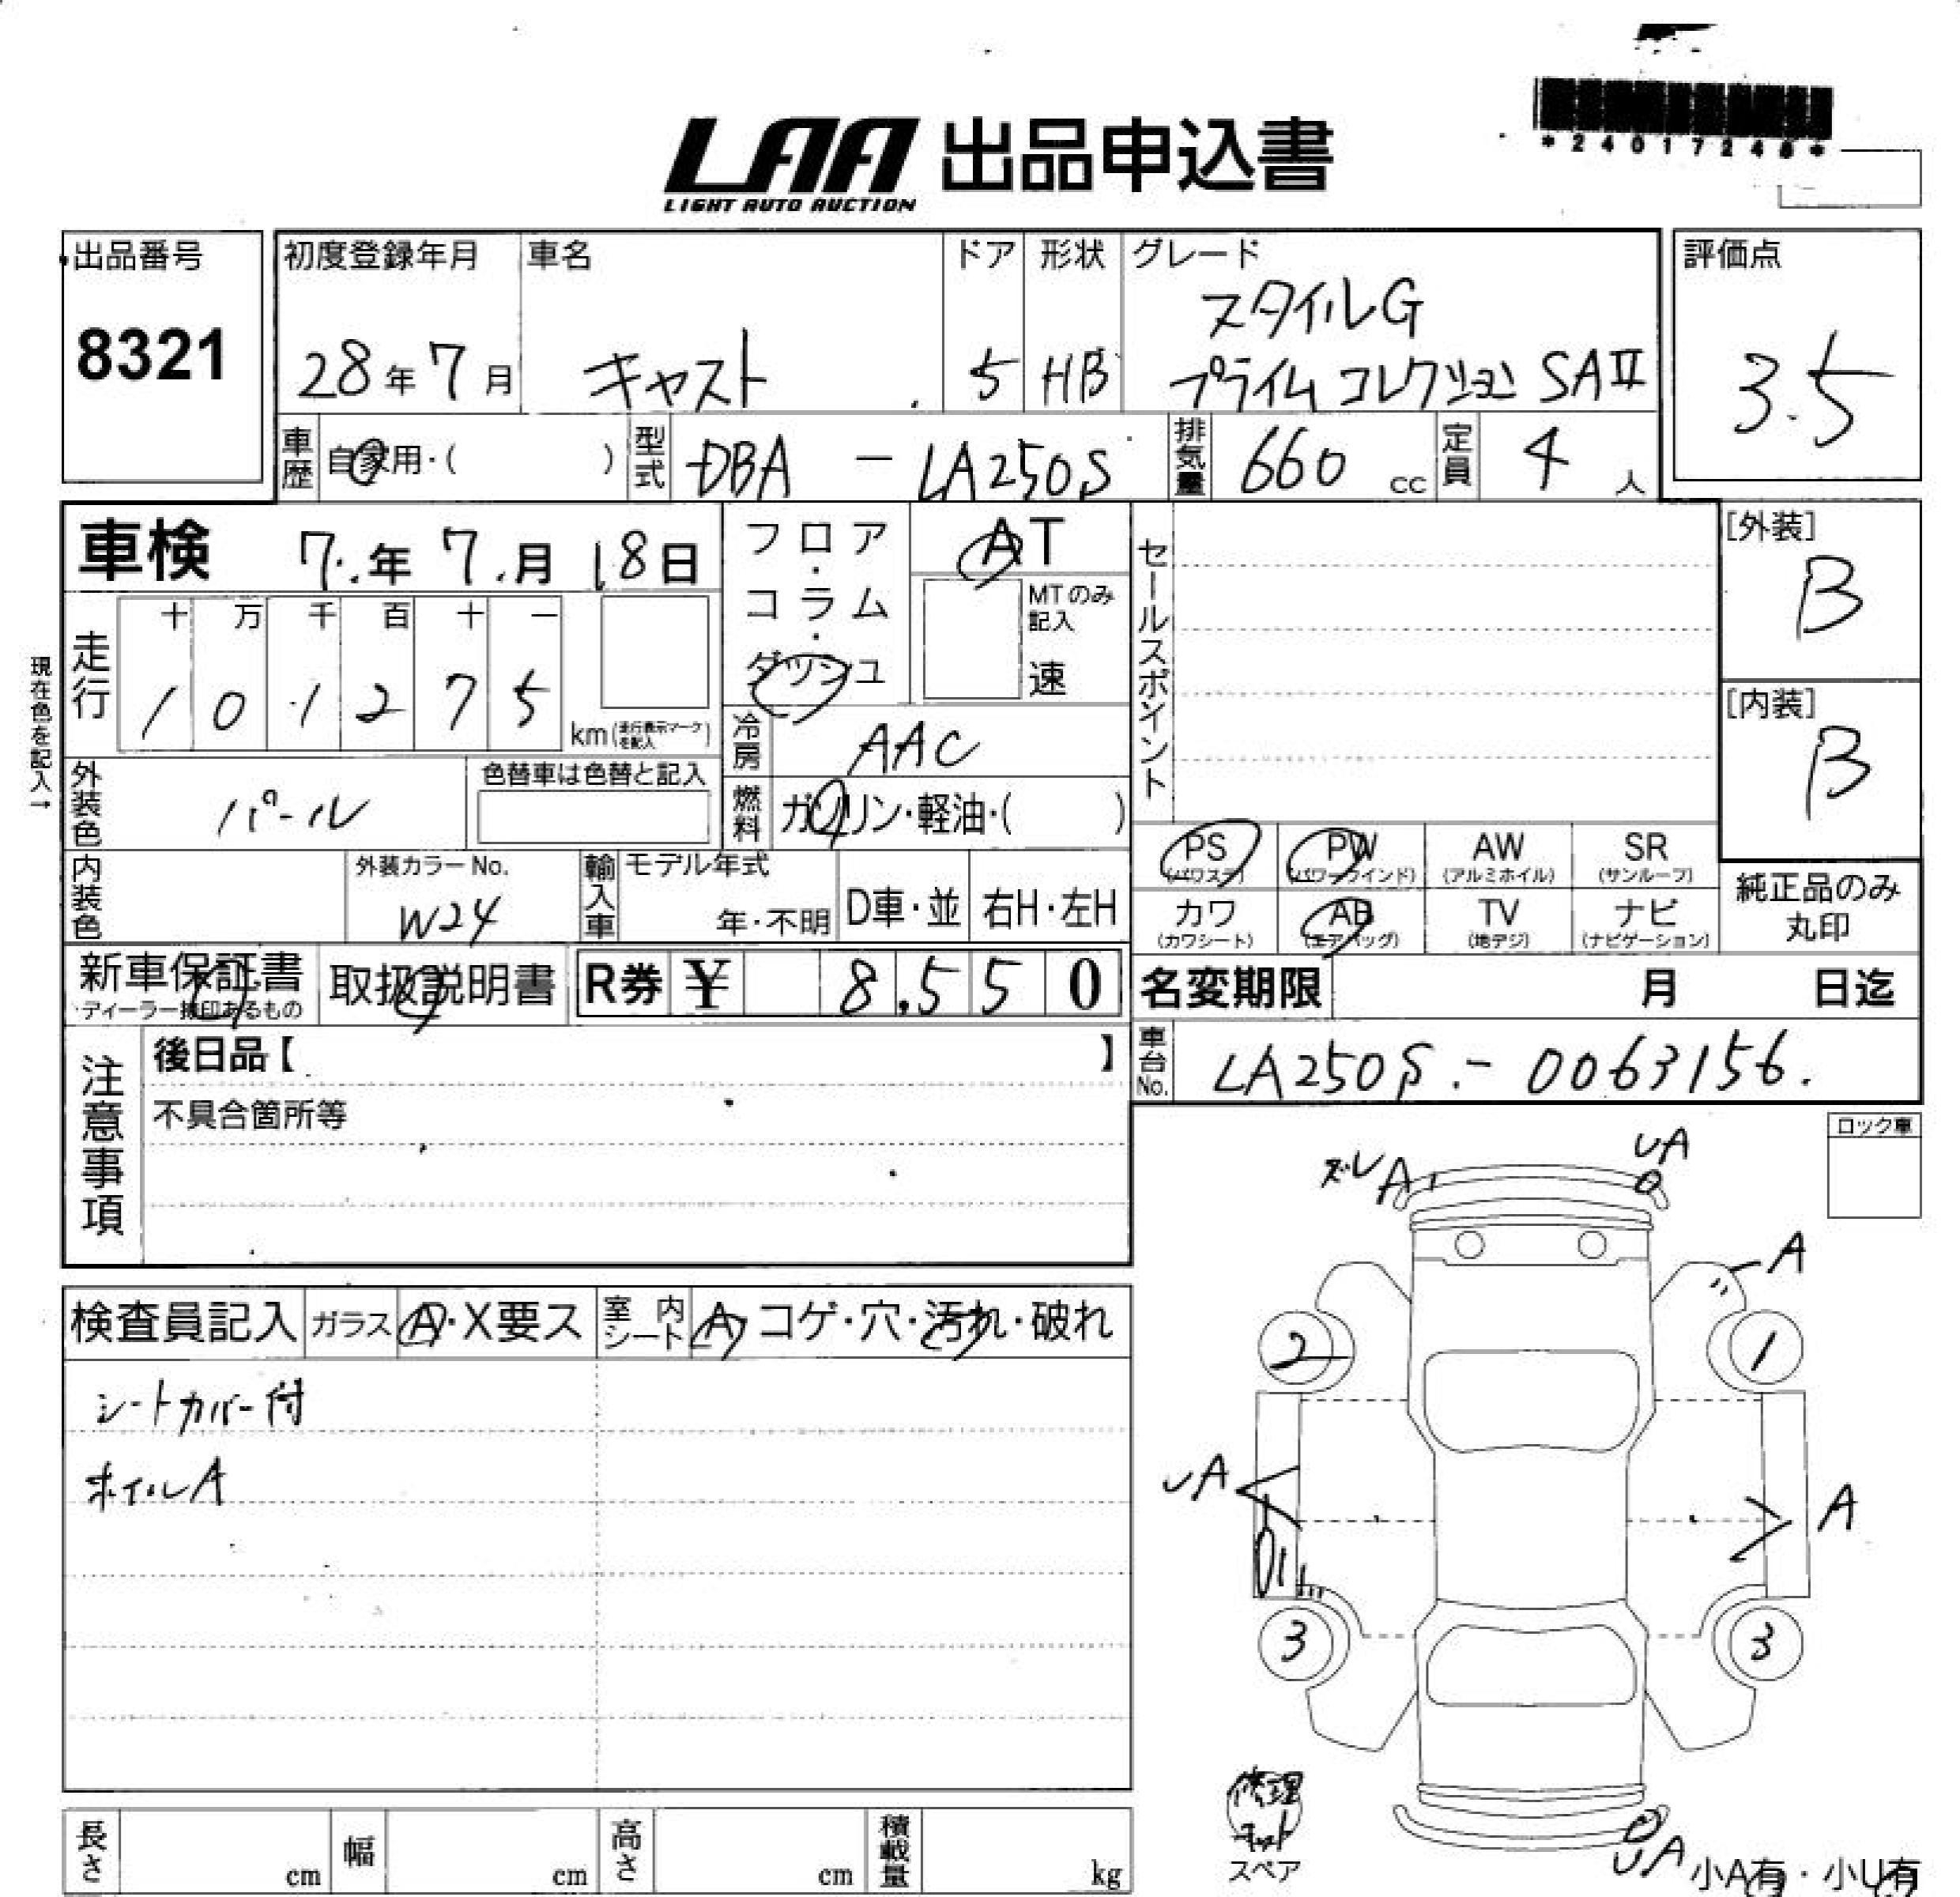 *24017248*
LAA 出品申込書
LIGHT AUTO AUCTION
出品番号
8321
初度登録年月
28年7月
車名
キャスト
ドア
5
形状
HB
グレード
スタイルG
プライムコレクション SAⅡ
評価点
3.5
車歴
自家用・( )
型式
DBA - LA250S
排気量
660 cc
定員
4 人
車検 7.年7.月18日
フロア・コラム・ダッシュ
AT
MTのみ記入
速
セールスポイント
[外装]
B
[内装]
B
現在色を記入→
走行
十 万 千 百 十 一
1 0 1 2 7 5
km(走行表示マークを記入)
冷房
AAC
外装色
パール
色替車は色替と記入
燃料
ガソリン・軽油・( )
内装色
外装カラーNo.
W24
輸入車
モデル年式
年・不明
D車・並
右H・左H
PS
(パワステ)
PW
(パワーウインド)
AW
(アルミホイル)
SR
(サンルーフ)
カワ
(カワシート)
AB
(エアバッグ)
TV
(地デジ)
ナビ
(ナビゲーション)
純正品のみ
丸印
新車保証書
ディーラー捺印あるもの
取扱説明書
R券 ¥ 8,550
名変期限 月 日迄
車台No.
LA250S.-0063156.
注意事項
後日品【 】
不具合箇所等
ロック車
ズレA
UA
A
2
1
UA
A
3
3
検査員記入
ガラス
A・X要ス
室内シート
A・コゲ・穴・汚れ・破れ
シートカバー付
ホイルA
修理
キット
スペア
UA
小A有・小U有
長さ cm
幅 cm
高さ cm
積載量 kg